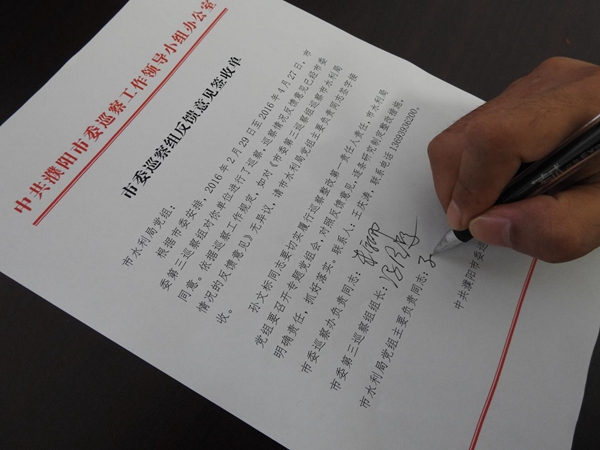 中共濮阳市委巡察工作领导小组办公室
市委巡察组反馈意见签收单
市水利局党组：
根据市委安排，2016年2月29日至2016年4月27日，市
委第三巡察组对你单位进行了巡察，巡察情况反馈意见已经市委
同意。依据巡察工作规定，如对《市委第三巡察组巡察市水利局
情况的反馈意见》无异议，请市水利局党组主要负责同志签字接
收。
孙文标同志要切实履行巡察整改第一责任人责任，市水利局
党组要召开专题党组会，对照反馈意见，逐条研究制定整改措施，
明确责任，抓好落实。联系人：王庆涛，联系电话13693936200。
市委巡察办负责同志：
市委第三巡察组组长：
市水利局党组主要负责同志：
中共濮阳市委巡